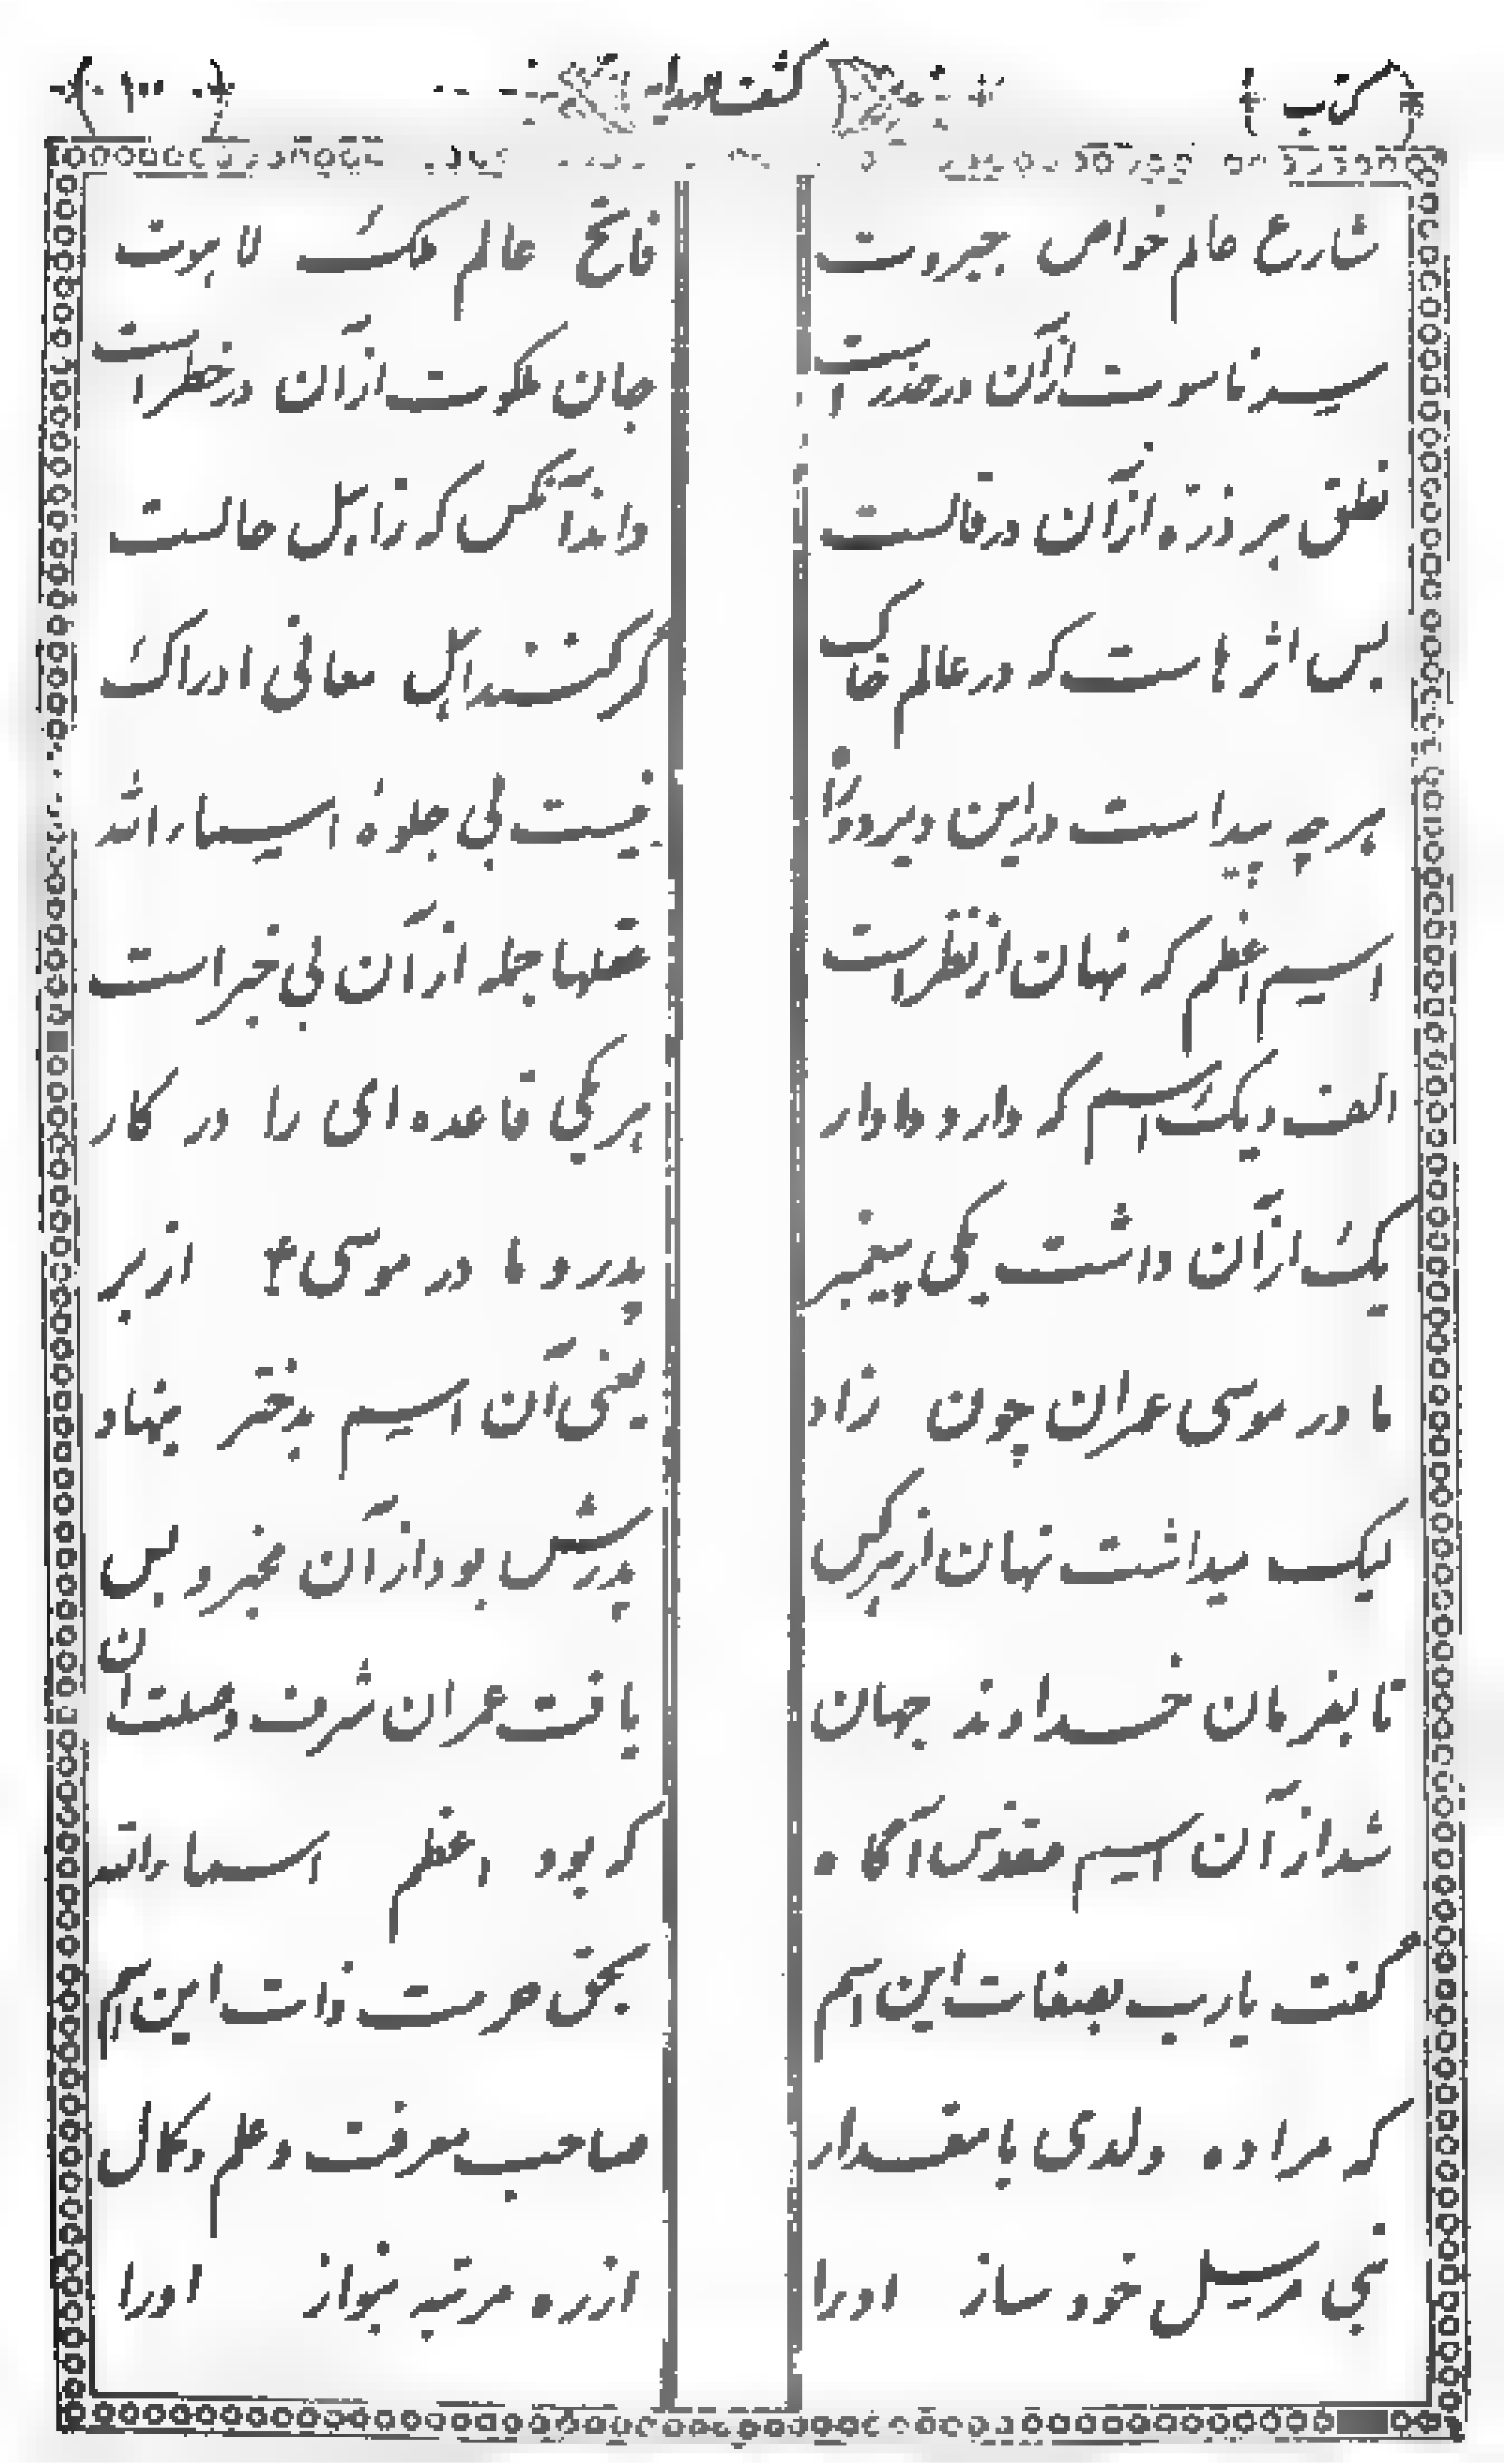 کتاب کشف الهدایه ۱۰۰
شارع عالم خواص جبروت فاتح عالم ملک لاهوت
سیر ناسوت از آن در حذر است جان ملکوت از آن در خطر است
نطق هر ذرّه از آن در قالست داند آنکس که ز اهل حالست
بس اثرهاست که در عالم خاک گر کنند اهل معانی ادراک
هر چه پیداست در این دیر دو راه نیست بی جلوهٔ اسماء الله
اسم اعظم که نهان از نظر است عقلها جمله از آن بی خبر است
الف و یک اسم که دارد دادار هر یکی قاعده ای را در کار
یک از آن داشت یکی پیغمبر پدر و مادر موسی ۴ از بر
مادر موسی عمران چون زاد یعنی آن اسم بدختر بنهاد
لیک میداشت نهان از هر کس پدرش بود از آن مخبر و بس
تا بفرمان خداوند جهان یافت عمران شرف وصلت آن
شد از آن اسم مقدّس آگاه که بود اعظم اسماء الله
گفت یارب بصفات این اسم بحق حرمت ذات این اسم
که مرا ده ولدی با مقدار صاحب معرفت و علم و کمال
نبی مرسل خود ساز او را از ره مرتبه بنواز او را